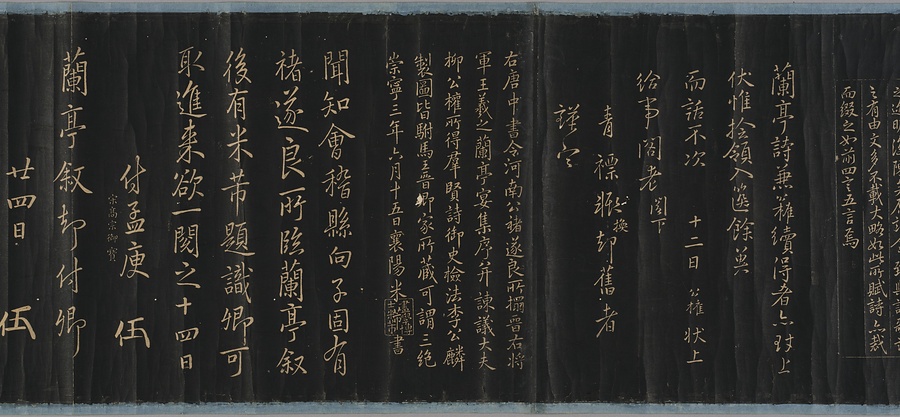 之有由文多不載大略如此所賦詩亦裁
而綴之如前四言五言焉
蘭亭詩兼蘿續得者亦對上
伏惟撿領入篋餘具
而話不次 十二日 公權狀上
給事閤老 閤下
青標緻換却舊者
謹空
右唐中書令河南公褚遂良所搨晉右將
軍王羲之蘭亭宴集序并諫議大夫
柳公權所得羣賢詩御史檢法李公麟
製圖皆駙馬晉卿家所藏可謂三絕
崇寧三年六月十五日襄陽米芾書
聞知會稽縣向子固有
褚遂良所臨蘭亭叙
後有米芾題識卿可
取進来欲一閱之十四日
付孟庾 伍
宗高宗御寶
蘭亭叙却付卿
廿四日 伍